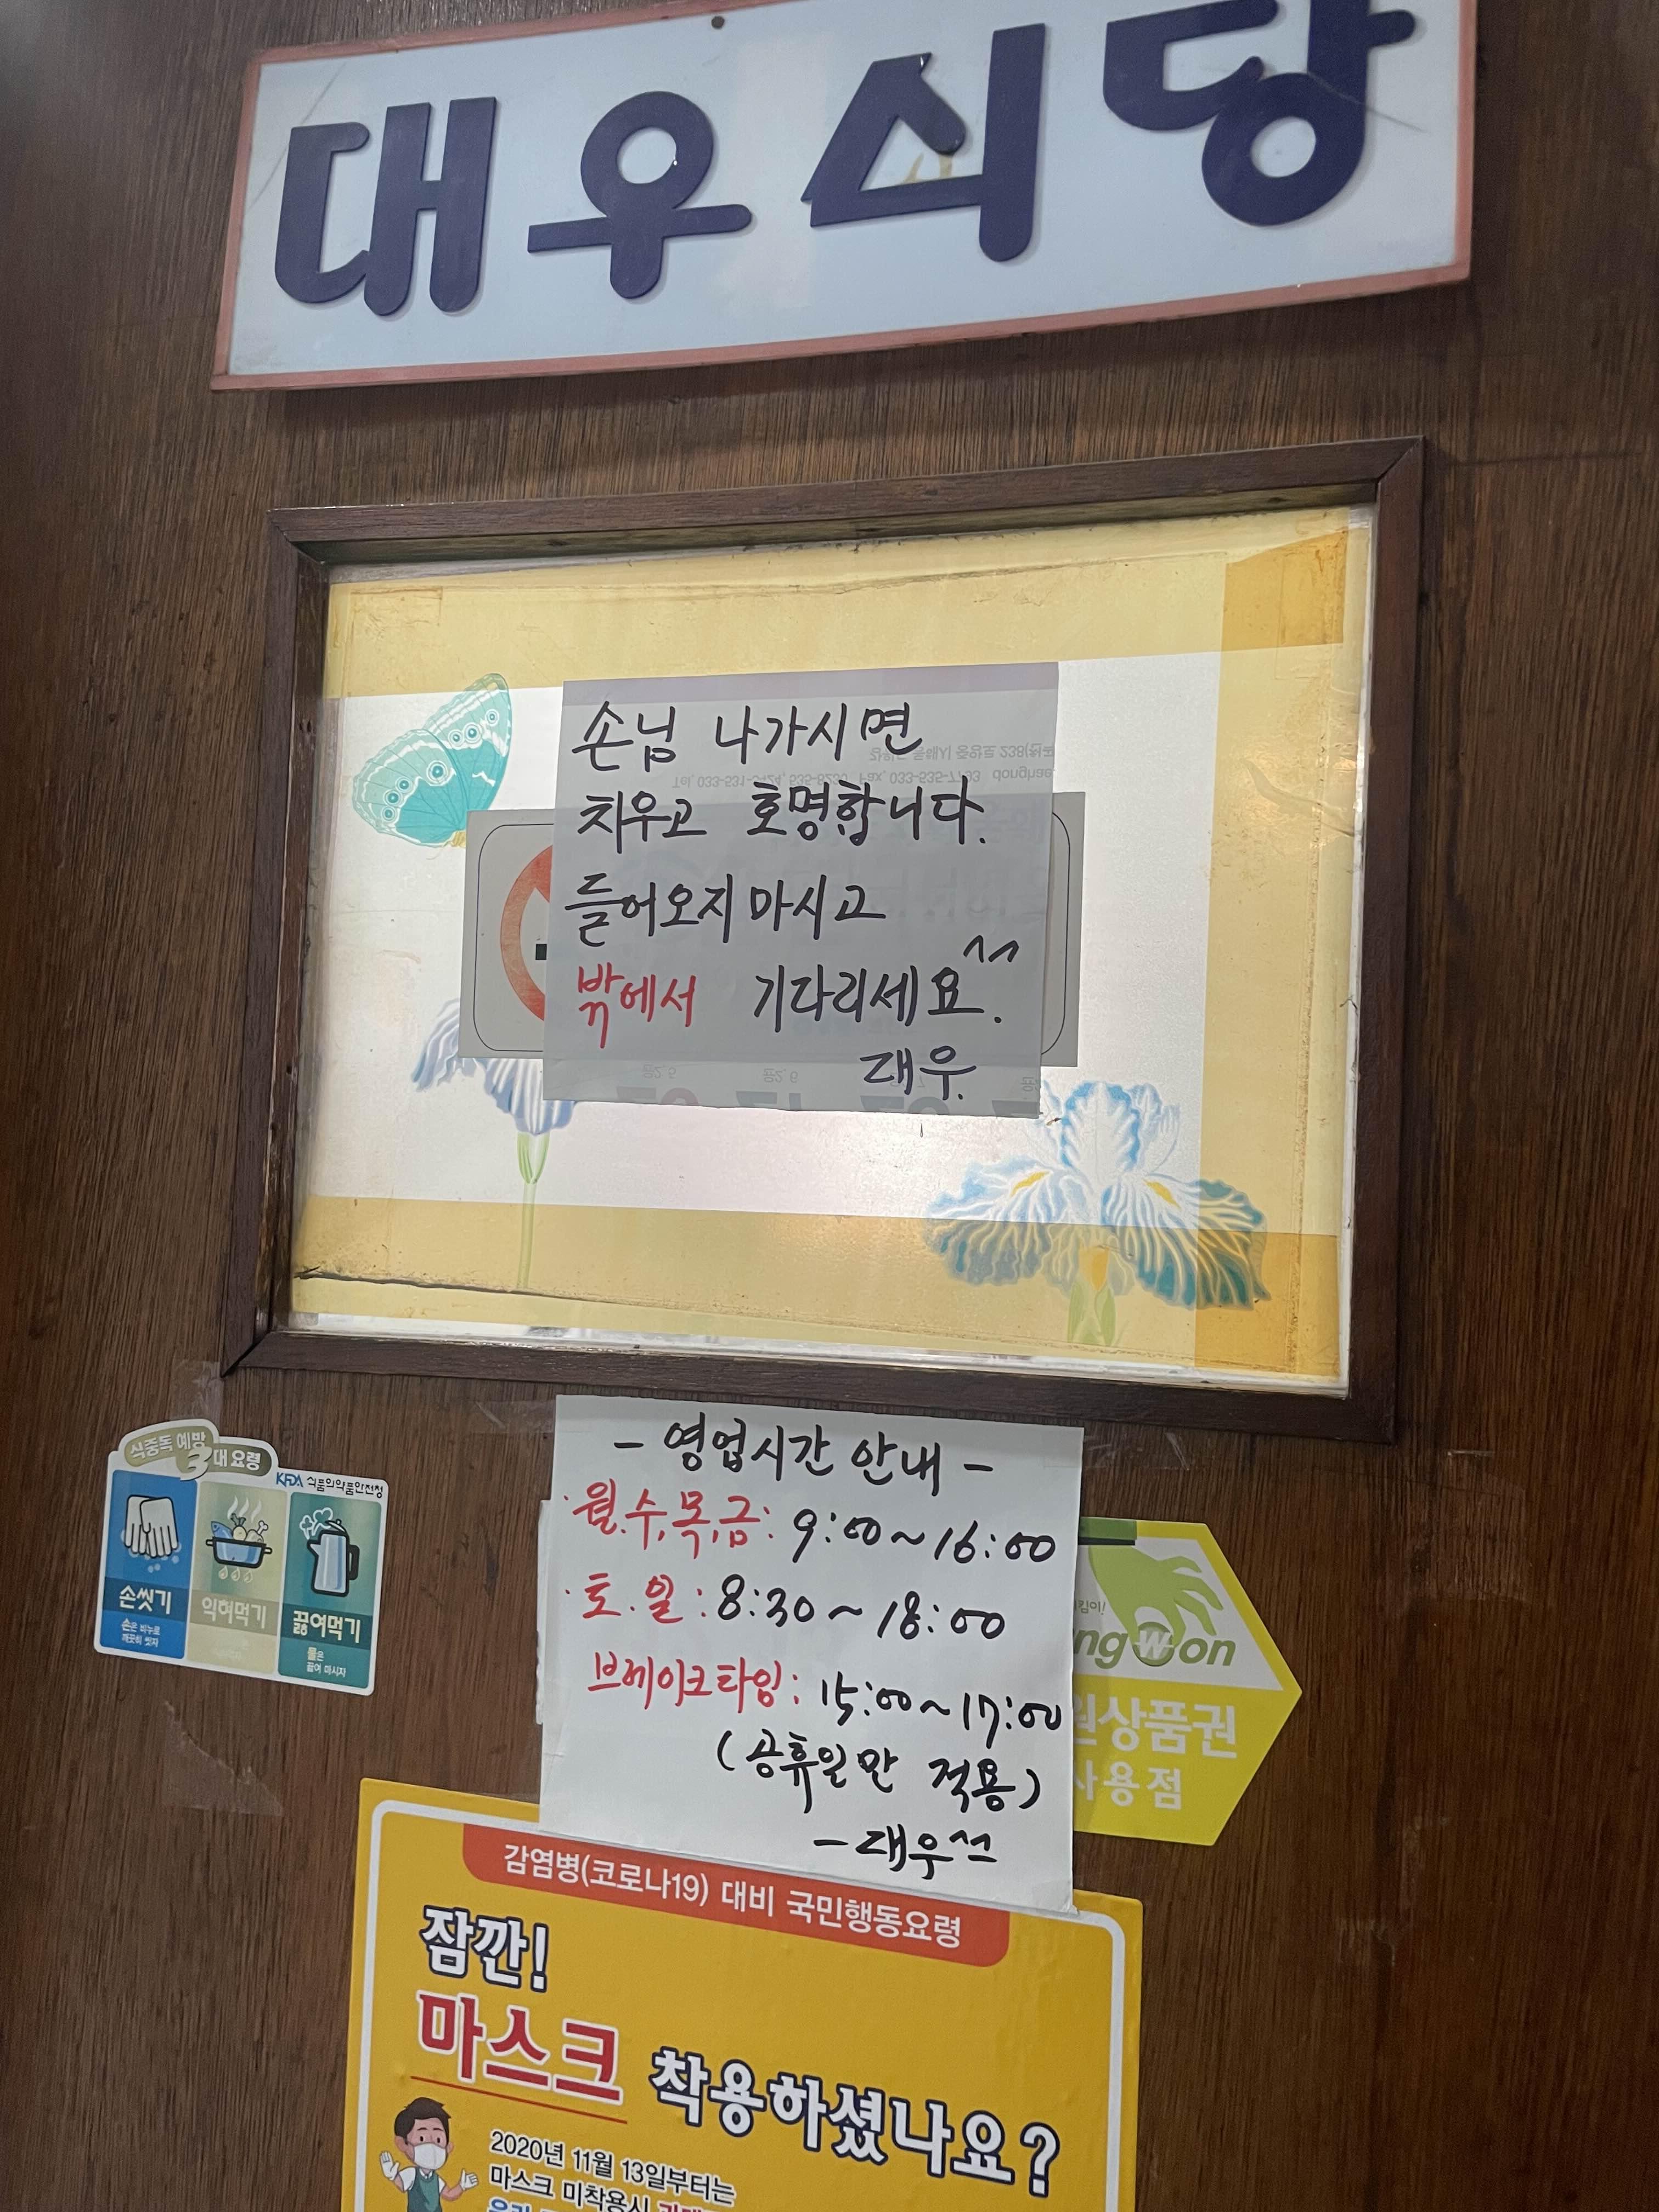 대우식당
손님 나가시면
치우고 호명합니다.
들어오지 마시고
밖에서 기다리세요^^.
대우.
- 영업시간 안내 -
·월.수,목,금: 9:00~16:00
·토.일: 8:30~18:00
브레이크타임: 15:00~17:00
(공휴일만 적용)
-대우^^
식중독 예방
3대 요령
KFDA 식품의약품안전청
손씻기
익혀먹기
끓여먹기
손은 비누로
깨끗이 씻자
물은
끓여 마시자
ngWon
원상품권
사용점
감염병(코로나19) 대비 국민행동요령
잠깐!
마스크 착용하셨나요?
2020년 11월 13일부터는
마스크 미착용시